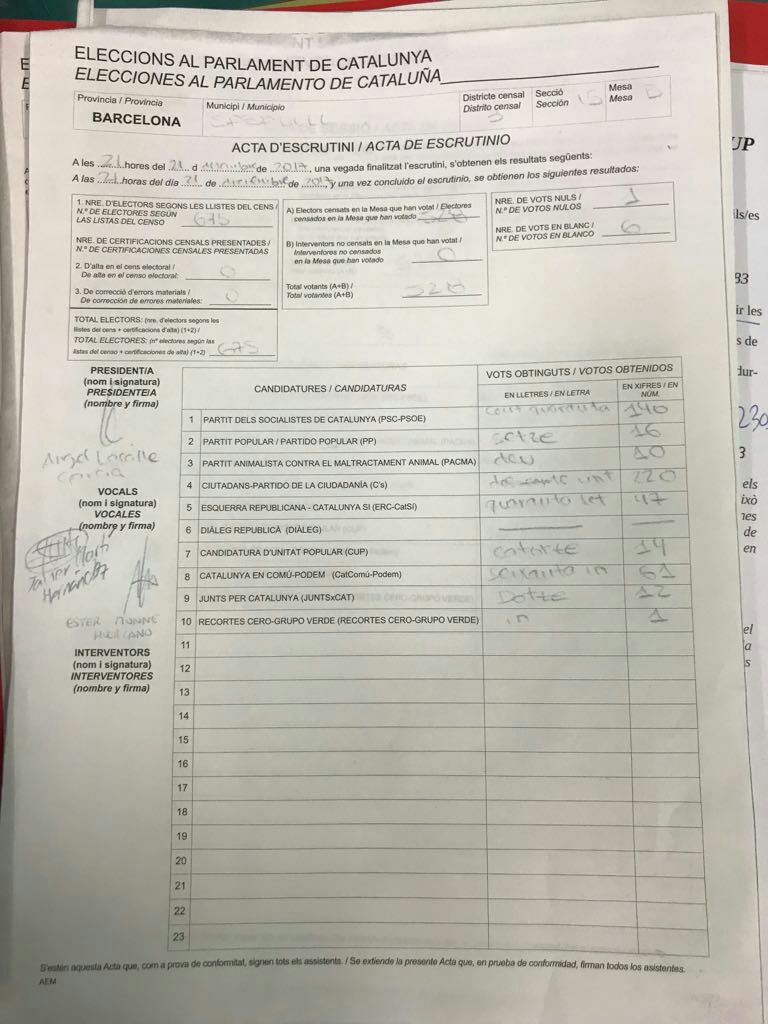 ELECCIONS AL PARLAMENT DE CATALUNYA
ELECCIONES AL PARLAMENTO DE CATALUÑA
Província / Provincia
BARCELONA
Municipi / Municipio
Districte censal
Distrito censal
Secció
Sección
15
Mesa
Mesa
B
ACTA D'ESCRUTINI / ACTA DE ESCRUTINIO
A les 21 hores del 21 d de 2017, una vegada finalitzat l'escrutini, s'obtenen els resultats següents:
A las 21 horas del día 21 de diciembre de 2017, y una vez concluido el escrutinio, se obtienen los siguientes resultados:
1. NRE. D'ELECTORS SEGONS LES LLISTES DEL CENS /
N.º DE ELECTORES SEGÚN
LAS LISTAS DEL CENSO 675
NRE. DE CERTIFICACIONS CENSALS PRESENTADES /
N.º DE CERTIFICACIONES CENSALES PRESENTADAS
2. D'alta en el cens electoral /
De alta en el censo electoral: 0
3. De correcció d'errors materials /
De corrección de errores materiales: 0
TOTAL ELECTORS: (nre. d'electors segons les
llistes del cens + certificacions d'alta) (1+2) /
TOTAL ELECTORES: (nº electores según las
listas del censo + certificaciones de alta) (1+2) 675
A) Electors censats en la Mesa que han votat / Electores
censados en la Mesa que han votado 528
B) Interventors no censats en la Mesa que han votat /
Interventores no censados
en la Mesa que han votado 0
Total votants (A+B) /
Total votantes (A+B) 528
NRE. DE VOTS NULS /
N.º DE VOTOS NULOS 1
NRE. DE VOTS EN BLANC /
N.º DE VOTOS EN BLANCO 6
PRESIDENT/A
(nom i signatura)
PRESIDENTE/A
(nombre y firma)
Angel
VOCALS
(nom i signatura)
VOCALES
(nombre y firma)
Javier
ESTER
INTERVENTORS
(nom i signatura)
INTERVENTORES
(nombre y firma)
CANDIDATURES / CANDIDATURAS
VOTS OBTINGUTS / VOTOS OBTENIDOS
EN LLETRES / EN LETRA
EN XIFRES / EN NÚM.
1 PARTIT DELS SOCIALISTES DE CATALUNYA (PSC-PSOE) cent quaranta 140
2 PARTIT POPULAR / PARTIDO POPULAR (PP) setze 16
3 PARTIT ANIMALISTA CONTRA EL MALTRACTAMENT ANIMAL (PACMA) deu 10
4 CIUTADANS-PARTIDO DE LA CIUDADANÍA (C's) 220
5 ESQUERRA REPUBLICANA - CATALUNYA SI (ERC-CatSí) quaranta set 47
6 DIÀLEG REPUBLICÀ (DIÀLEG)
7 CANDIDATURA D'UNITAT POPULAR (CUP) catorte 14
8 CATALUNYA EN COMÚ-PODEM (CatComú-Podem) seixanta un 61
9 JUNTS PER CATALUNYA (JUNTSxCAT) Dotte 12
10 RECORTES CERO-GRUPO VERDE (RECORTES CERO-GRUPO VERDE) un 1
11
12
13
14
15
16
17
18
19
20
21
22
23
S'estén aquesta Acta que, com a prova de conformitat, signen tots els assistents. / Se extiende la presente Acta que, en prueba de conformidad, firman todos los asistentes.
AEM
UP
ils/es
83
ir les
s de
dur-
230
3
els
ixò
nes
de
en
el
a
s